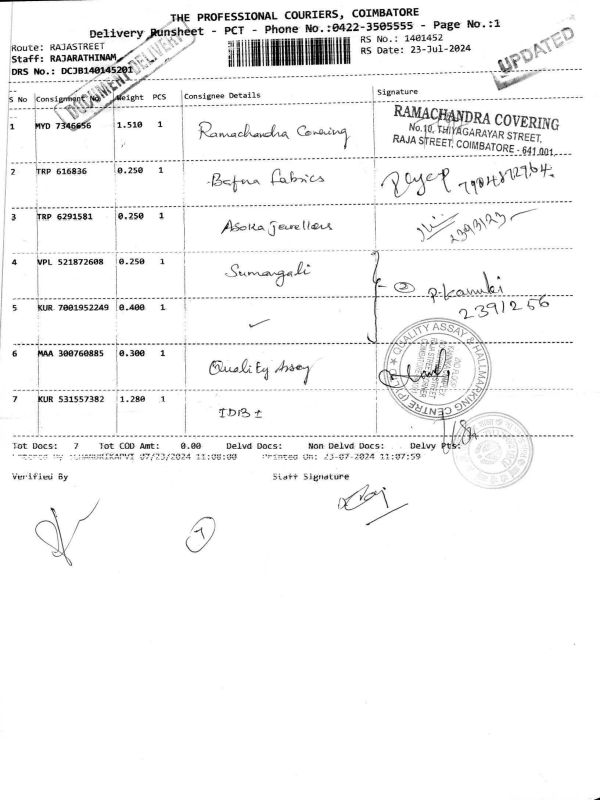 THE PROFESSIONAL COURIERS, COIMBATORE
Delivery Runsheet - PCT - Phone No.:0422-3505555 - Page No.:1
Route: RAJASTREET
Staff: RAJARATHINAM
DRS No.: DCJB140145201
RS No.: 1401452
RS Date: 23-Jul-2024
DOCUMENT DELIVERY
UPDATED
S No Consignment No Weight PCS Consignee Details Signature
1 MYD 7346656 1.510 1 Ramachandra Covering
RAMACHANDRA COVERING
No.10, THIYAGARAYAR STREET,
RAJA STREET, COIMBATORE - 641 001.
2 TRP 616836 0.250 1 Bafna fabrics
3 TRP 6291581 0.250 1 Asoka Jewellers 2393123
4 VPL 521872608 0.250 1 Sumangali
② P. Kanuki
2391256
5 KUR 7001952249 0.400 1 ✓
6 MAA 300760885 0.300 1 Quality Assay
QUALITY ASSAY & HALLMARKING CENTRE (P)
7 KUR 531557382 1.280 1 IDBI
Tot Docs: 7 Tot COD Amt: 0.00 Delvd Docs: Non Delvd Docs: Delvy Pts:
07/23/2024 11:08:00 Printed On: 23-07-2024 11:07:59
Verified By Staff Signature
7